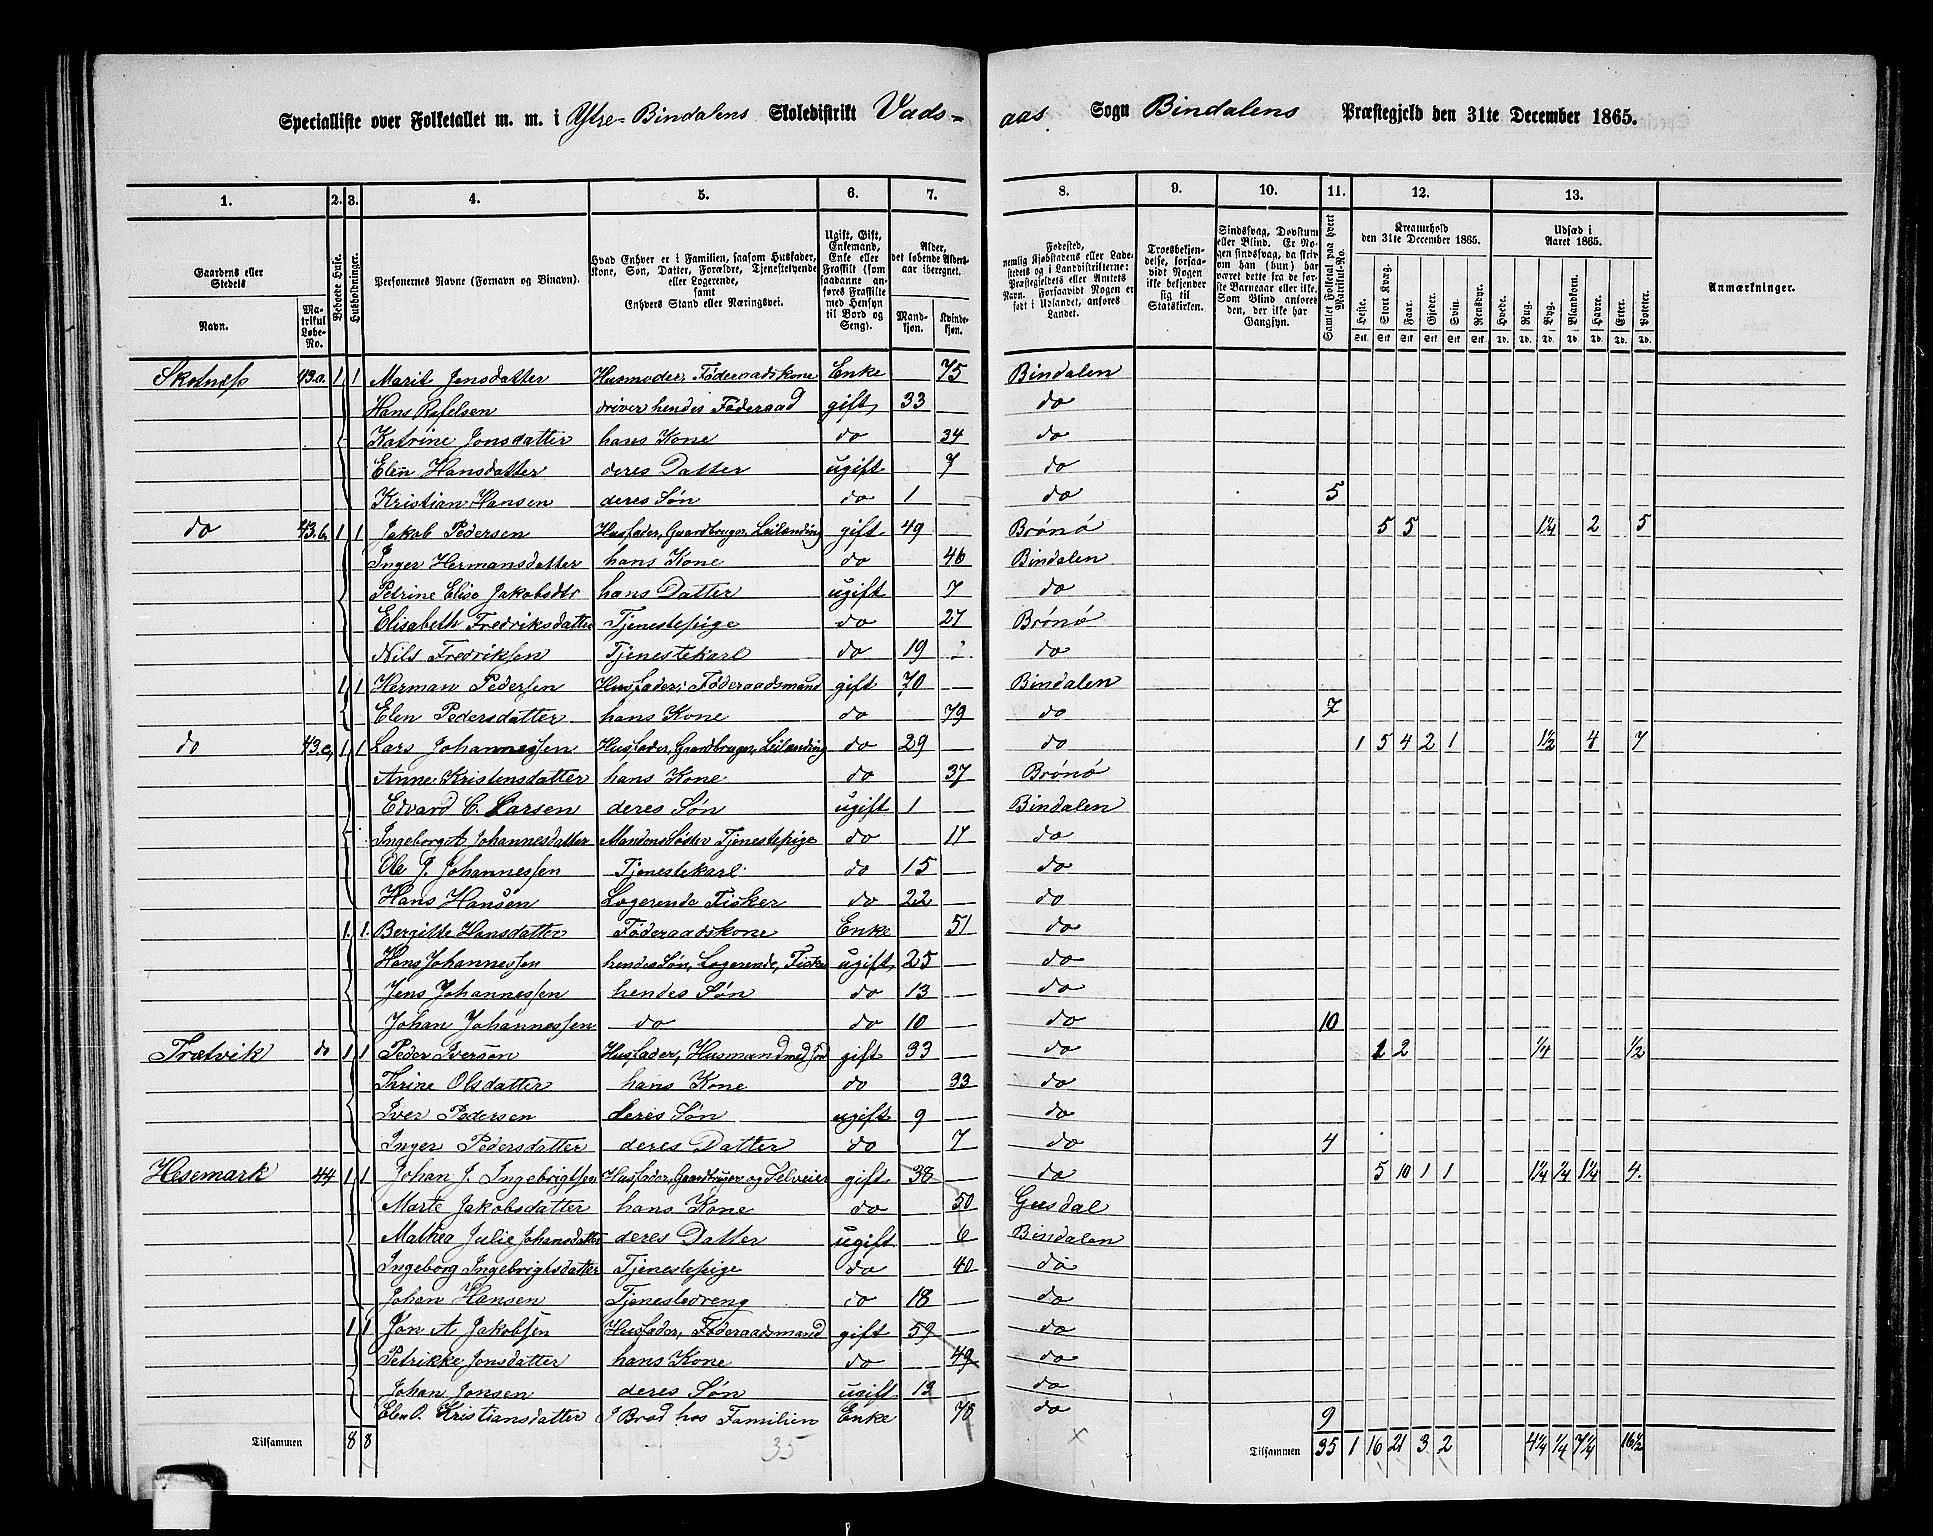 Specialliste over Folketallet m. m. i Ytre-Bindalens Skoledistrikt Vadsaas Sogn Bindalens Præstegjeld den 31te December 1865.
1. 2. 3. 4. 5. 6. 7. 8. 9. 10. 11. 12. 13.
Gaardens eller Stedets Navn. Matrikul Løbe-No. Beboede Huse. Husholdninger. Personernes Navne (Fornavn og Binavn). Hvad Enhver er i Familien, saasom Husfader, Kone, Søn, Datter, Forældre, Tjenestetyende eller Logerende, samt Enhvers Stand eller Næringsvei. Ugift, Gift, Enkemand, Enke eller Fraskilt (som saadanne anføres Fraskilte med Hensyn til Bord og Seng). Alder, det løbende Aldersaar iberegnet. Mandkjøn. Kvindekjøn. Fødested, nemlig Kjøbstadens eller Ladestedets og i Landdistrikterne: Præstegjeldets eller Amtets Navn. Forsaavidt Nogen er født i Udlandet, anføres Landet. Troesbekjendelse, forsaavidt Nogen ikke bekjender sig til Statskirken. Sindssvag, Døvstum eller Blind. Er Nogen sindssvag, da skrives om han (hun) har været dette fra de første Barneaar eller ikke. Som Blind anføres den, der ikke har Gangsyn. Samlet Folketal paa hvert Matrikul-No. Kreaturhold den 31te December 1865. Heste. Stort Kvæg. Faar. Gjeder. Svin. Rensdyr. Udsæd i Aaret 1865. Hvede. Rug. Byg. Blandkorn. Havre. Erter. Poteter. Anmærkninger.
Skotnæss 43.a 1 1 Marit Jensdatter Husmoder, Føderaadskone Enke 75 Bindalen
Hans Rafelsen driver hendes Føderaad gift 33 do
Katrine Jonsdatter hans Kone do 34 do
Elen Hansdatter deres Datter ugift 7 do
Kristian Hansen deres Søn do 1 do 5
do 43.b. 1 1 Jakob Pedersen Husfader, Gaardbruger, Leilænding gift 49 Brønø 5 5 1¼ 2 5
Inger Hermansdatter hans Kone do 46 Bindalen
Petrine Elise Jakobsdtr hans Datter ugift 7 do
Elisabeth Fredriksdatter Tjenestepige do 27 Brønø
Nils Fredriksen Tjenestekarl do 19 do
1 1 Herman Pedersen Husfader, Føderaadsmand gift 70 Bindalen
Elen Pedersdatter hans Kone do 79 do 7
do 43.c, 1 1 Lars Johannessen Husfader, Gaardbruger, Leilænding do 29 do 1 5 4 2 1 1½ 4 7
Anne Kristensdatter hans Kone do 37 Brønø
Edvard C. Larsen deres Søn ugift 1 Bindalen
Ingeborg A Johannesdatter Mandens Søster Tjenestepige do 17 do
Ole J. Johannessen Tjenestekarl do 15 do
Hans Hansen Logerende Fisker do 22 do
1. 1. Bergitte Hansdatter Føderaadskone Enke 51 do
Hans Johannessen hendes Søn, Logerende, Fisker ugift 25 do
Jens Johannessen hendes Søn do 13 do
Johan Johannessen do do 10 do 10
Trætvik do 1 1 Peder Iversen Husfader, Husmand med Jord gift 33 do 1 2 ¼ ½
Thrine Olsdatter hans Kone do 33 do
Iver Pedersen deres Søn ugift 9 do
Inger Pedersdatter deres Datter do 7 do 4
Hesemark 44 1 1 Johan J. Ingebrigtsen Husfader, Gaardbruger og Selveier gift 38 do 5 10 1 1 1¼ ¼ 1¼ 4.
Marte Jakobsdatter hans Kone do 50 Gusdal
Mathea Julie Johansdatter deres Datter ugift 6 Bindalen
Ingeborg Ingebrigtsdatter Tjenestepige do 40 do
Johan Hansen Tjenestedreng do 18 do
1 1 Jon A Jakobsen Husfader, Føderaadsmand gift 59 do
Petrikke Jonsdatter hans Kone do 49 do
Johan Jonsen deres Søn ugift 13 do
Elen O. Kristiansdatter I Brød hos Familien Enke 78 do 9
Tilsammen 8 8 35 Tilsammen 35 1 16 21 3 2 4¼ ¼ 7¼ 16½